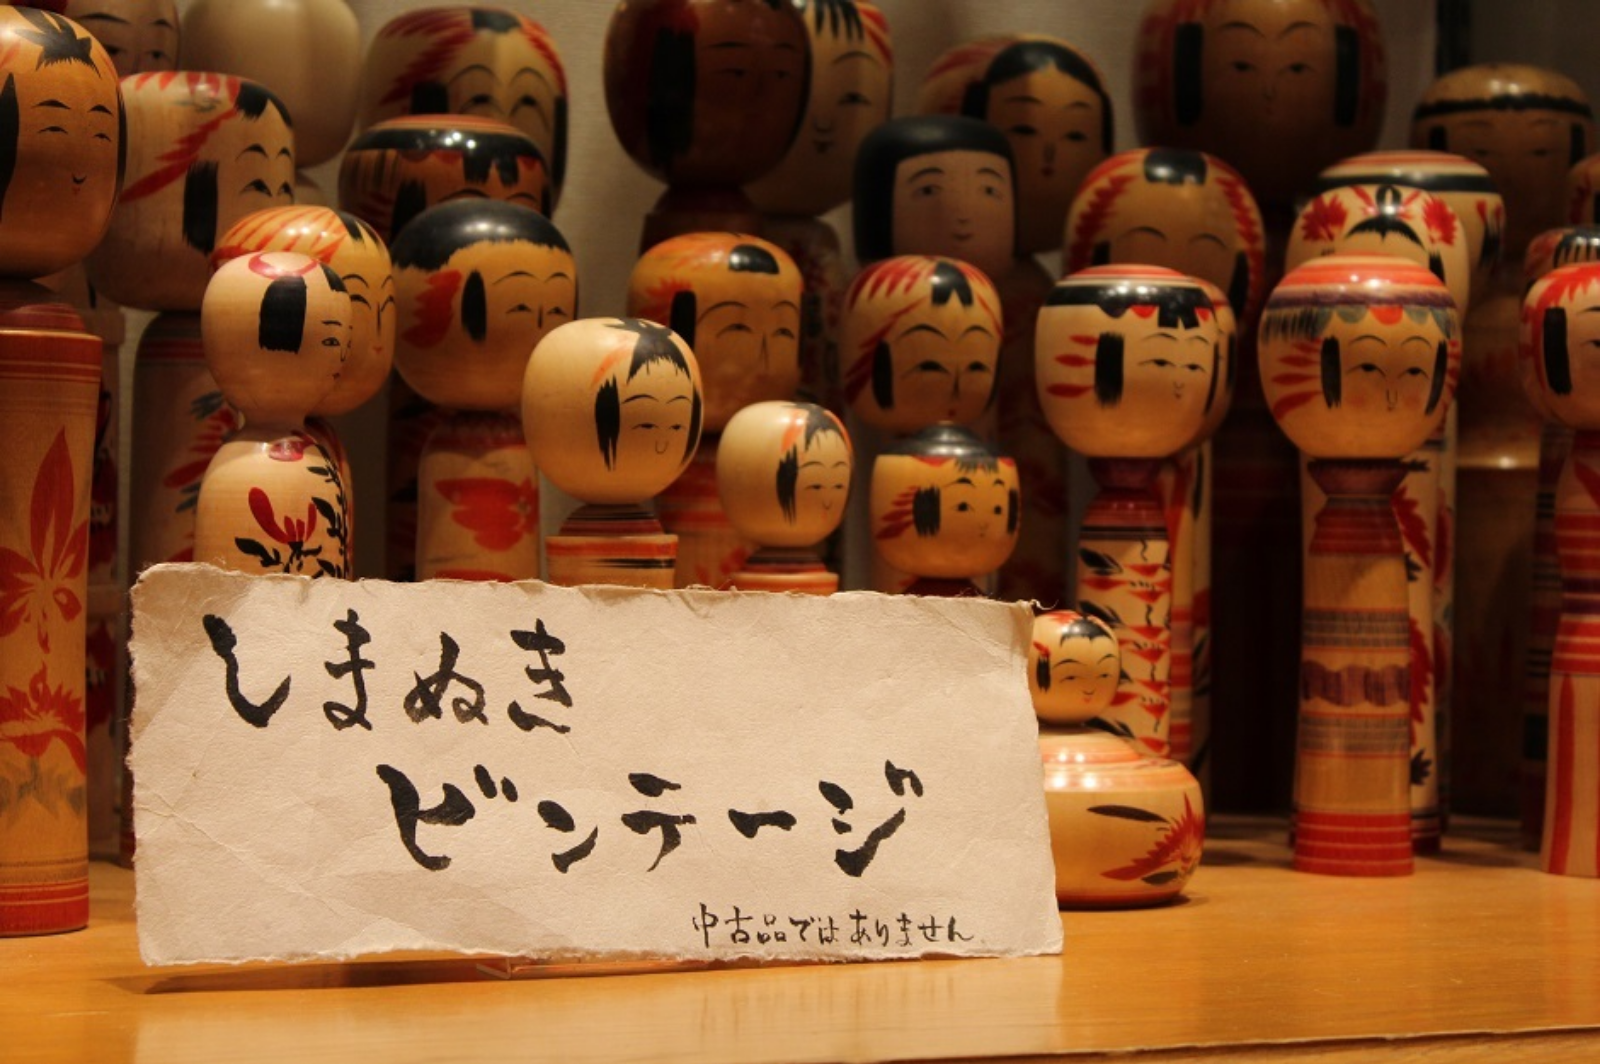 しまぬき
ビンテージ
中古品ではありません